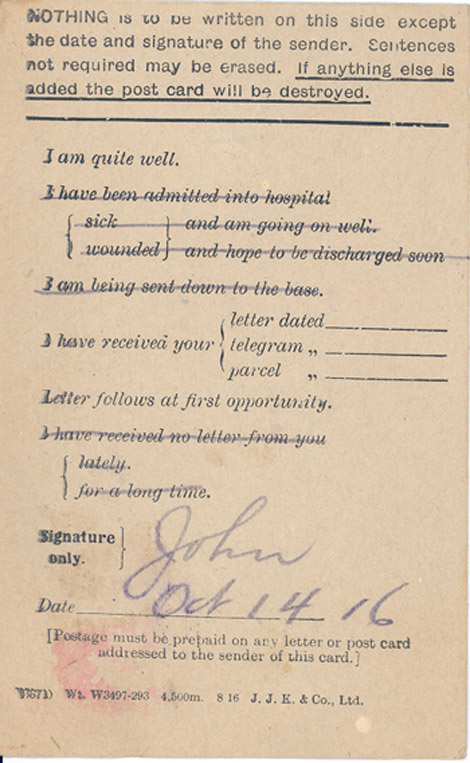 NOTHING is to be written on this side except
the date and signature of the sender. Sentences
not required may be erased. If anything else is
added the post card will be destroyed.
I am quite well.
I have been admitted into hospital
sick and am going on well.
wounded and hope to be discharged soon
I am being sent down to the base.
letter dated
I have received your telegram „
parcel „
Letter follows at first opportunity.
I have received no letter from you
lately.
for a long time.
Signature
only.
John
Date Oct 14 16
[Postage must be prepaid on any letter or post card
addressed to the sender of this card.]
Wt. W3497-293 4,500m. 8 16 J. J. K. & Co., Ltd.